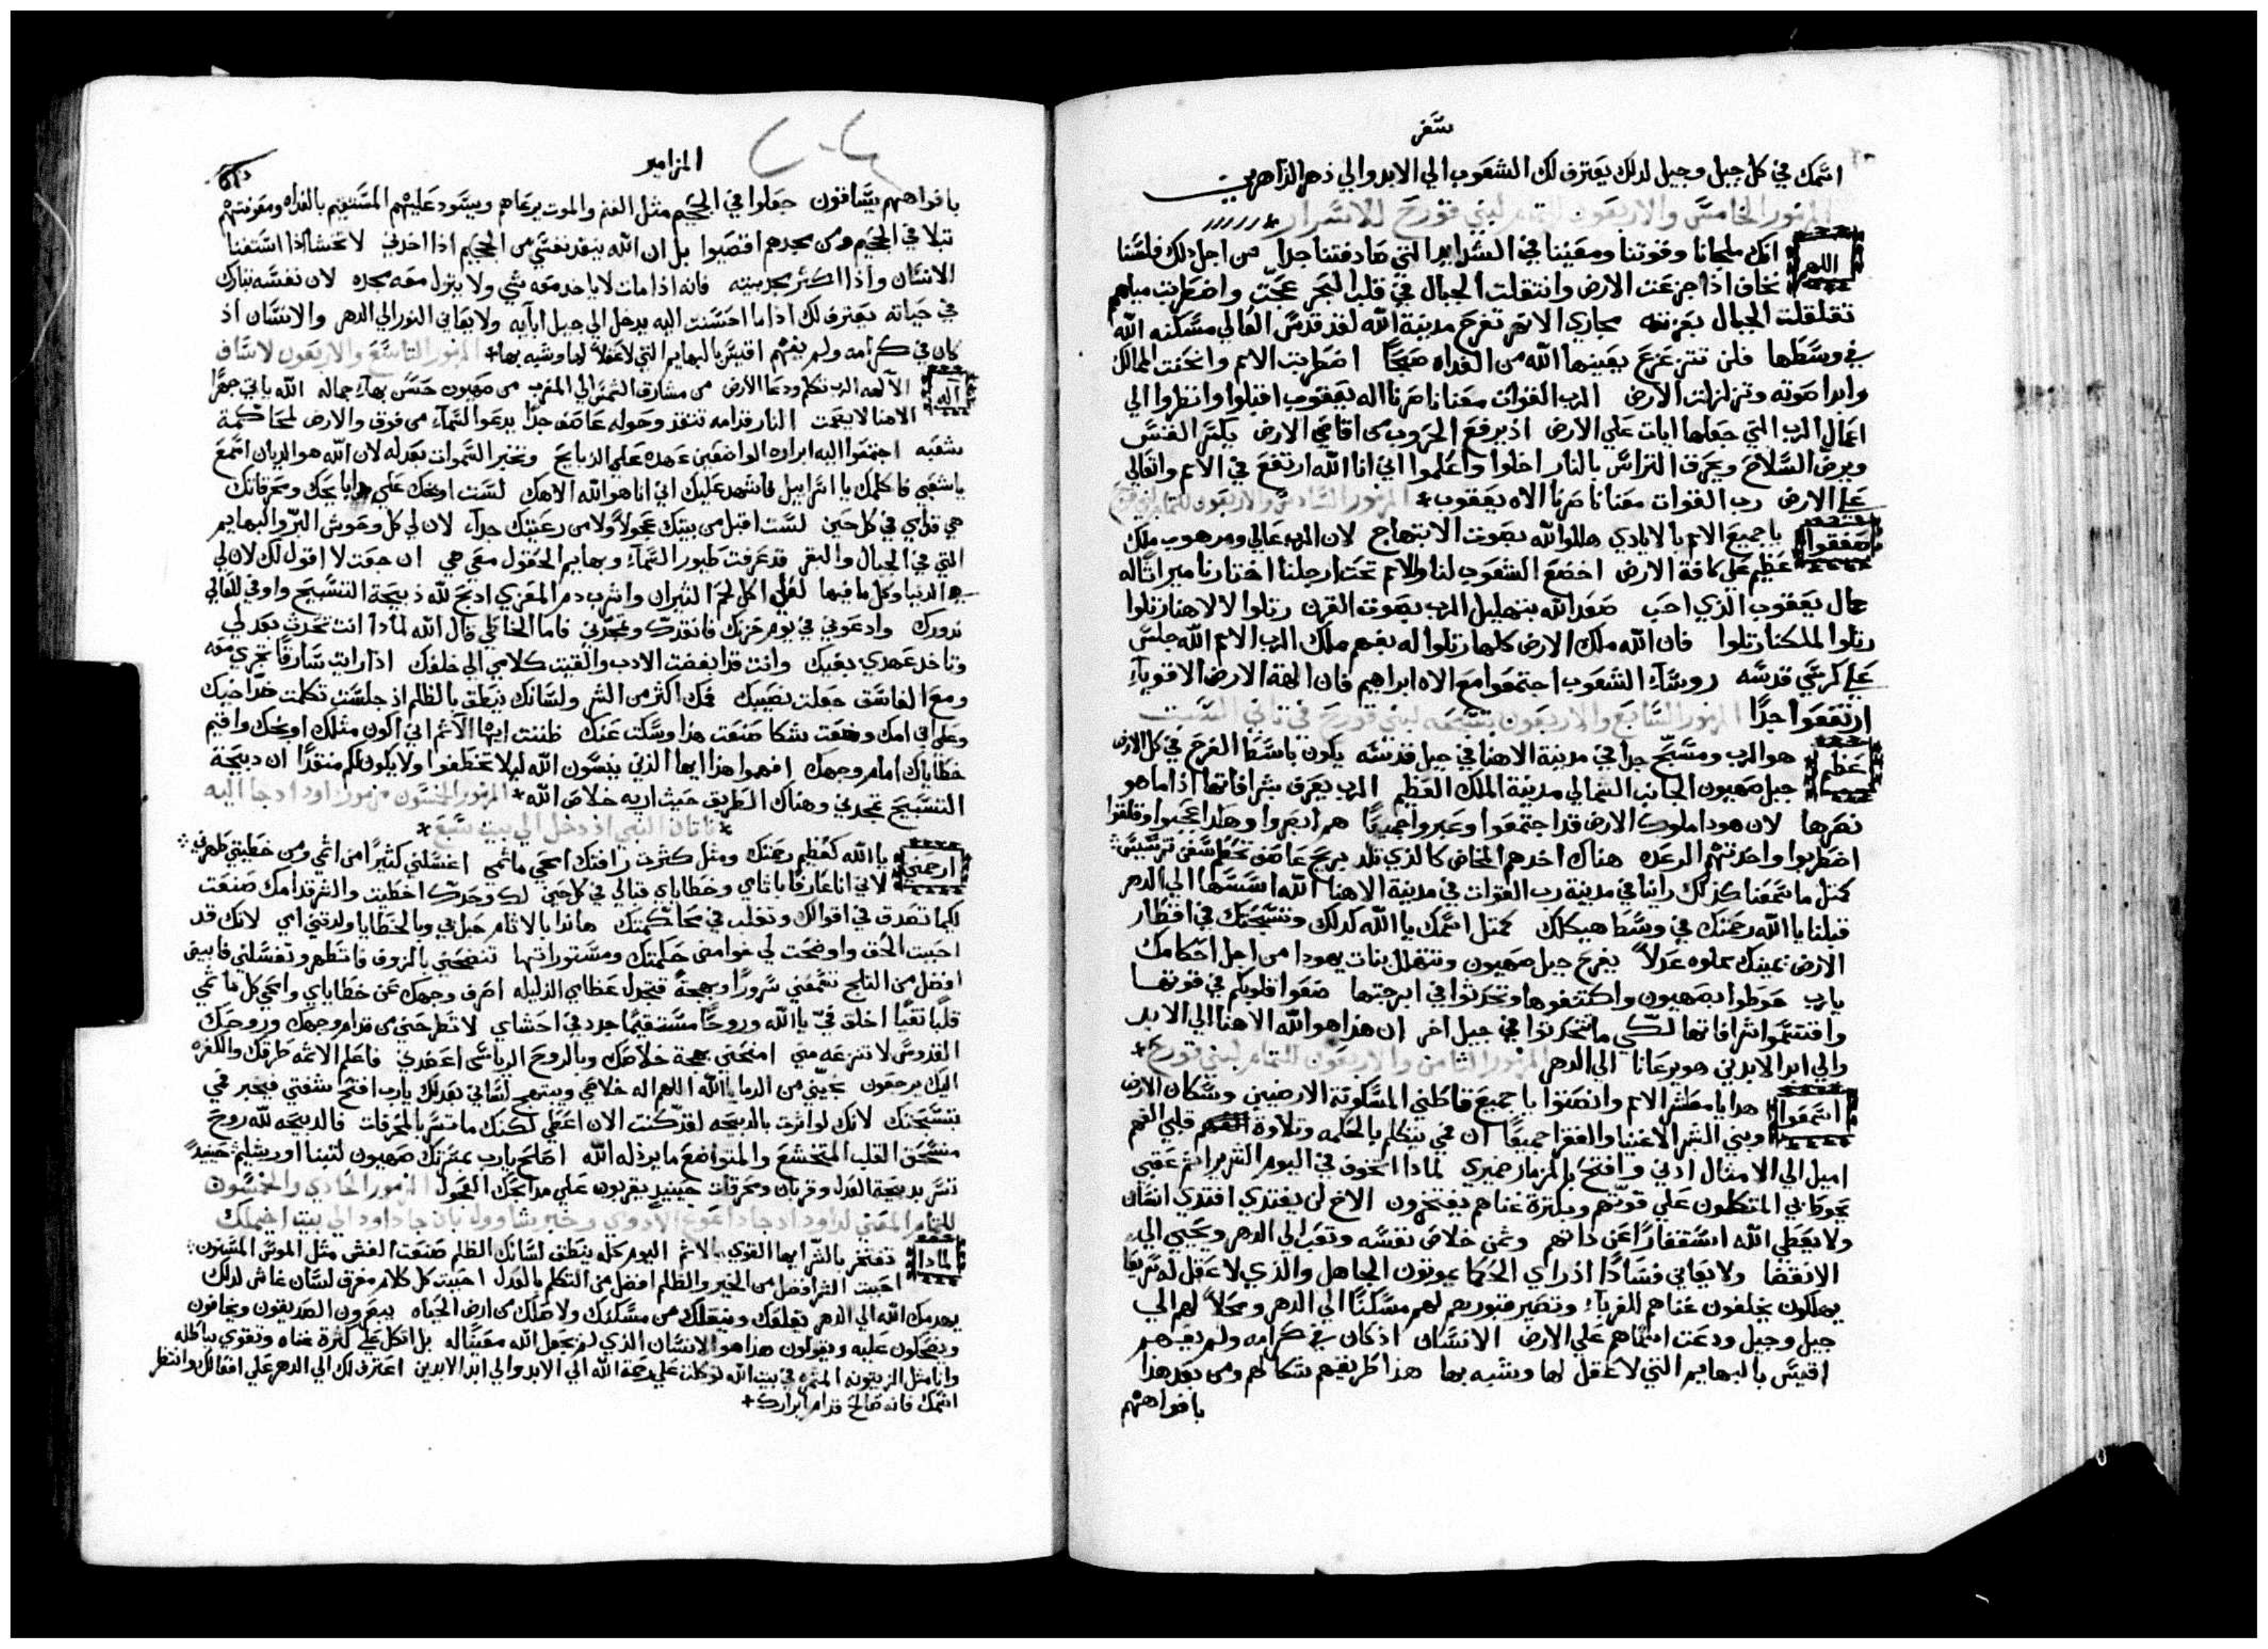 سفر
اسمك في كل جيل وجيل لدلك يعترف لك الشعوب الي الابد والي دهر الداهرين
المزمور الخامس والاربعون للتمام لبني قورح للاسرار
اللهم انك ملجانا وقوتنا ومعيننا في الشدايد التي صادفتنا جدا من اجل دلك فلسنا
نخاف اذا جزعت الارض وانتقلت الجبال في قلب البحر عجت واضطربت مياهم
تقلقلت الجبال بعزته مجاري الانهر تفرح مدينة الله لقد قدس العالي مسكنه الله
في وسطها فلن تتزعزع يعينها الله من الغداه صبحا اضطربت الامم وانحنت الممالك
وابدا صوته وتزلزلت الارض الرب القوات معنا ناصرنا اله يعقوب اقبلوا وانظروا الي
اعمال الرب التي جعلها ايات علي الارض اذ يرفع الحروب من اقاصي الارض يكسر القسي
ويرض السلاح ويحرق التراس بالنار اخلوا واعلموا اني انا الله ارتفع في الامم واتعالي
علي الارض رب القوات معنا ناصرنا الاه يعقوب المزمور السادس والاربعون للتمام لبني قورح
صفقوا يا جميع الامم بالايادي هللوا لله بصوت الابتهاج لان الرب عالي ومرهوب ملك
عظيم علي كافة الارض اخضع الشعوب لنا والامم تحت ارجلنا اختارنا ميراثا له
جمال يعقوب الذي احب صعد الله بتهليل الرب بصوت القرن رتلوا لالاهنا رتلوا
رتلوا لملكنا رتلوا فان الله ملك الارض كلها رتلوا له بفهم ملك الرب الامم الله جلس
علي كرسي قدسه روسآء الشعوب اجتمعوا مع الاه ابراهيم فان الهة الارض الاقوياء
ارتفعوا جدا المزمور السابع والاربعون تسبحه لبني قورح في ثاني السبت
عظيم هو الرب ومسبح جدا في مدينة الاهنا في جبل قدسه يكون باسطا الفرح في كل الارض
جبل صهيون الجانب الشمالي مدينة الملك العظيم الرب يعرف بشرافاتها اذا ما هو
نصرها لان هودا ملوك الارض قد اجتمعوا وعبروا جميعا هم ابصروا وهكدا عجبوا وقلقوا
اضطربوا واخدتهم الرعده هناك اخدهم المخاض كالذي تلد بريح عاصف تحطم سفن ترسيس
كمثل ما سمعنا كذلك راينا في مدينة رب القوات في مدينة الاهنا الله اسسها الي الدهر
قبلنا يا الله رحمتك في وسط هيكلك كمتل اسمك يا الله كدلك وتسبحتك في اقطار
الارض يمينك مملوه عدلا يفرح جبل صهيون وتتهلل بنات يهودا من اجل احكامك
يارب حوطوا بصهيون واكتنفوها وتحدثوا في ابرجتها ضعوا قلوبكم في قوتها
واقتسموا شرافاتها لكي ما تتحدثوا في جيل اخر ان هذا هو الله الاهنا الي الابد
والي ابد الابدين هو يرعانا الي الدهر المزمور الثامن والاربعون للتمام لبني قورح
اسمعوا هدا يا معاشر الامم وانصتوا يا جميع قاطني المسكونة الارضيين وسكان الارض
وبني البشر الاغنيا والفقرا جميعا ان فمي يتكلم بالحكمه وتلاوة قلبي الفهم
اميل الي الامثال ادني وافتح بالمزمار ضميري لمادا اتخوف في اليوم الشرير اثم عقبي
يحوط بي المتكلون علي قوتهم وبكترة غناهم يفتخرون الاخ لن يفتدي افتدي انسان
ولا يعطي الله استغفارا عن داتهم وثمن خلاص نفسه وتعب الي الدهر ويحيي الي
الانقضا ولا يعاين فسادا اذ راي الحكما يموتون الجاهل والذي لا عقل له سريعا
يهلكون يخلفون غناهم للغرباء وتصير قبورهم لهم مسكنا الي الدهر ومحلا لهم الي
جيل وجيل ودعت اسماهم علي الارض الانسان اذ كان في كرامه ولم يفهم
اقيس بالبهايم التي لا عقل لها وشبه بها هذا طريقهم شكا لهم ومن بعد هدا
بافواههم
المزامير
بافواههم يسافون جعلوا في الجحيم مثل الغنم والموت يرعاهم ويسود عليهم المستقيم بالغداه ومعونتهم
تبلا في الجحيم ومن مجدهم اقصيوا بل ان الله ينقد نفسي من الجحيم اذا اخدني لا تخشا اذا استغنا
الانسان واذا اكثر مجد بيته فانه اذا مات لا ياخد معه شي ولا ينزل معه مجده لان نفسه تبارك
في حياته يعترف لك اذا ما احسنت اليه يدخل الي جيل ابايه ولا يعاين النور الي الدهر والانسان اذ
كان في كرامه ولم يفهم اقيس بالبهايم التي لا عقل لها وشبه بها المزمور التاسع والاربعون لاساف
اله الآلهه الرب تكلم ودعا الارض من مشارق الشمس الي المغرب من صهيون حسن بهاء جماله الله ياتي جهرا
الاهنا لا يصمت النار قدامه تتقد وحوله عاصف جدا يدعو السمآء من فوق والارض لمحاكمة
شعبه اجتمعوا اليه ابراره الواضعين عهده علي الدبايح وتخبر السموات بعدله لان الله هو الديان اسمع
يا شعبي فاكلمك يا اسراييل فاشهد عليك اني انا هو الله الاهك لست اوبخك علي دبايحك ومحرقاتك
هي قدامي في كل حين لست اقبل من بيتك عجولا ولا من رعيتك جداء لان لي كل وحوش البر والبهايم
التي في الجبال والبقر قد عرفت طيور السمآء وبهايم الحقول معي هي ان جعت لا اقول لك لان لي
هي الدنيا وكل ما فيها لعلي اكل لحم الثيران واشرب دم المعزي ادبح لله ذبيحة التسبيح واوفي للعالي
ندورك وادعوني في يوم حزنك فانقدك وتمجدني فاما الخاطي قال الله لمادا انت تحدث بعدلي
وتاخد عهدي بفيك وانت قد ابغضت الادب والقيت كلامي الي خلفك اذا رايت سارقا تجري معه
ومع الفاسق جعلت نصيبك فمك اكثر من الشر ولسانك ينطق بالظلم اذ جلست تكلمت ضد اخيك
وعلي ابن امك وضعت شكا صنعت هذا وسكت عنك ظننت ايها الآثم اني اكون مثلك اوبخك واقيم
خطاياك امام وجهك افهموا هذا ايها الذين ينسون الله ليلا تختطفوا ولا يكون لكم منقذا ان دبيحة
التسبيح تمجدني وهناك الطريق حيث اريه خلاص الله المزمور الخمسون مزمور لداود اد جا اليه
ناتان النبي اذ دخل الي بيت سبع
ارحمني يا الله كعظيم رحمتك ومثل كثرت رافتك امحي ماثمي اغسلني كثيرا من اثمي ومن خطيتي طهرني
لاني انا عارفا باثامي وخطاياي قبالي في كل حين لك وحدك اخطيت والشر قدامك صنعت
لكيما تصدق في اقوالك وتغلب في محاكمتك هاندا بالاثام حبل بي وبالخطايا ولدتني امي لانك قد
احببت الحق واوضحت لي غوامض حكمتك ومستوراتها تنضحني بالزوفا فاتطهر وتغسلني فابيض
افضل من الثلج تسمعني سرورا وبهجة فتجدل عظامي الدليله اصرف وجهك عن خطاياي وامحي كل ماثمي
قلبا نقيا اخلق فيّ يا الله وروحا مستقيما جدد في احشاي لا تطرحني من قدام وجهك وروحك
القدوس لا تنزعه مني امنحني بهجة خلاصك وبالروح الرياسي اعضدني فاعلم الاثمه طرقك والكفره
اليك يرجعون نجيني من الدما يا الله اللهم اله خلاصي ويبتهج لساني بعدلك يارب افتح شفتي فيخبر فمي
بتسبحتك لانك لو اثرت بالدبيحه لقد كنت الان اعطي لكنك ما تسر بالمحرقات فالدبيحه لله روح
منسحق القلب المتخشع والمتواضع ما يرذله الله اصلح يارب بمسرتك صهيون لتبنا اورشليم حينيد
تسر بدبيحة العدل وقربان ومحرقات حينيد يقربون علي مدابحك العجول المزمور الحادي والخمسون
للتمام المعني لداود اد جا داعوغ الادومي وخبر شاوول بان جا داود الي بيت اخيملك
لمادا تفتخر بالشر ايها القوي بالاثم اليوم كله ينطق لسانك الظلم صنعت الغش مثل الموس المسنون
احببت الشر افضل من الخير والظلم افضل من التكلم بالعدل احببت كل كلام مغرق لسان غاش لدلك
يهدمك الله الي الدهر يقلعك وينقلك من مسكنك ولاصلك من ارض الحياه يبصرون الصديقون ويخافون
ويضحكون عليه ويقولون هدا هو الانسان الذي لم يجعل الله معينا له بل اتكل علي كثرة غناه وتقوي بباطله
وانا مثل الزيتونه المثمره في بيت الله توكلت علي رحمة الله الي الابد والي ابد الابدين اعترف لك الي الدهر علي افعالك وانتظر
اسمك فانه صالح قدام ابرارك